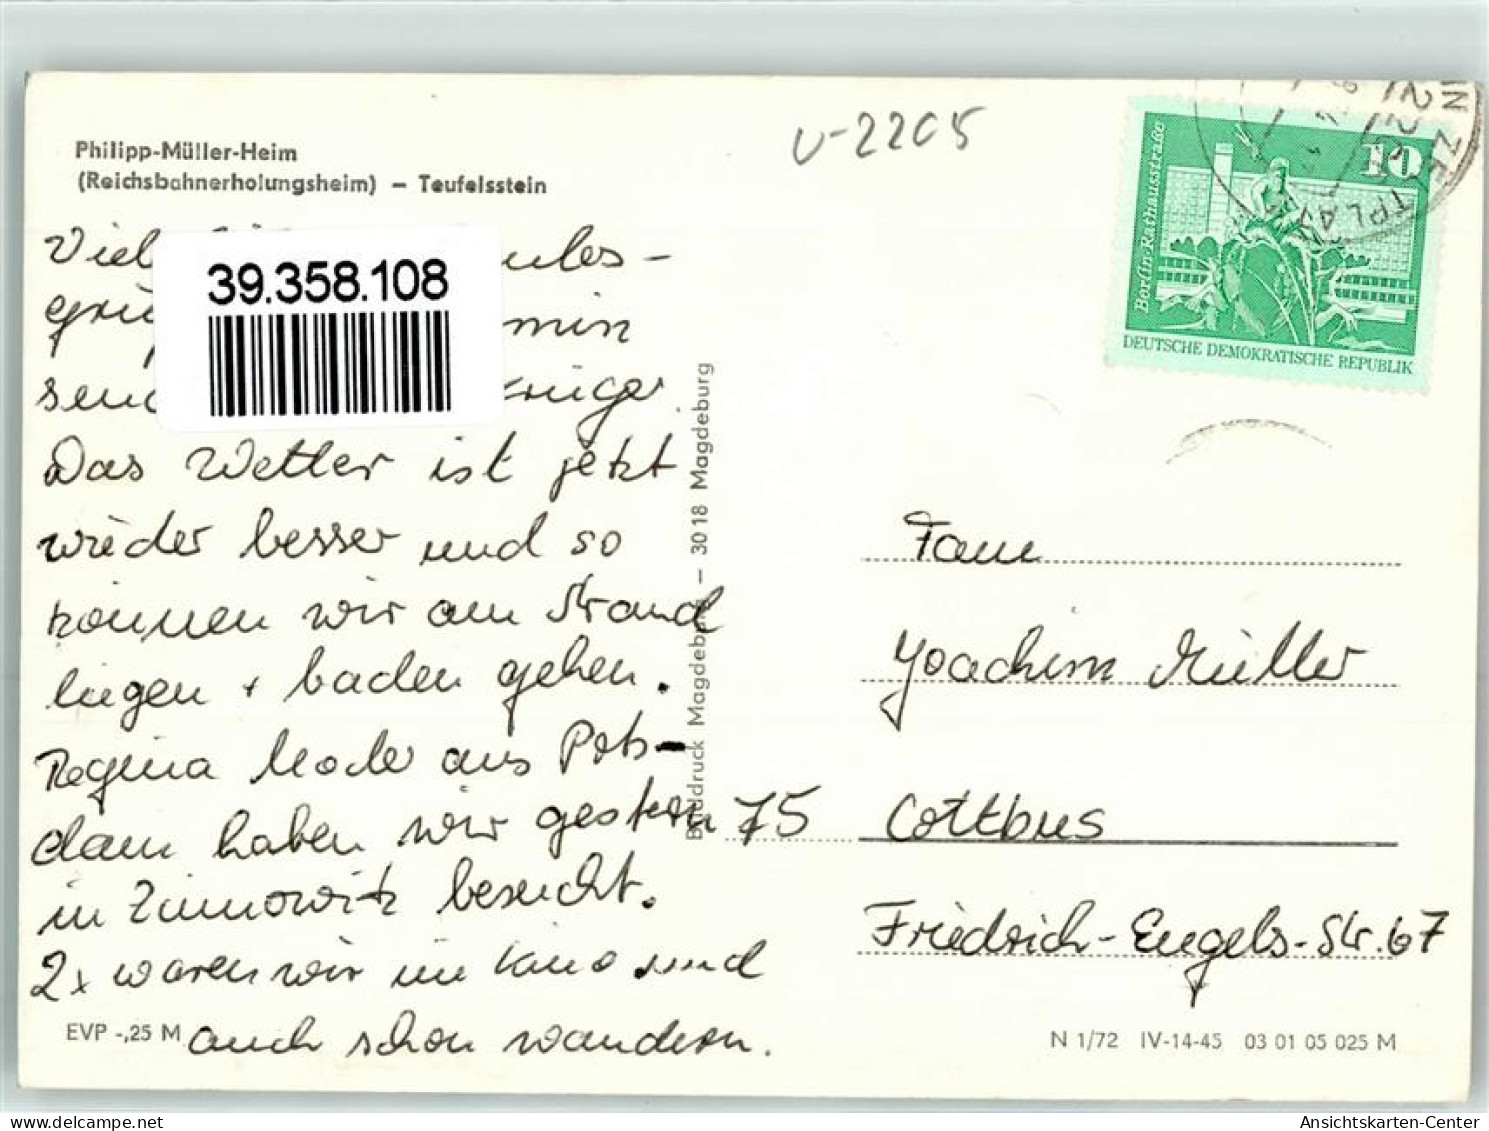 Philipp-Müller-Heim
(Reichsbahnerholungsheim) – Teufelsstein
U-2205
10
Berlin-Rathausstraße
DEUTSCHE DEMOKRATISCHE REPUBLIK
39.358.108
Das Wetter ist jetzt
wieder besser und so
können wir am Strand
liegen + baden gehen.
Regina Mode aus Pots-
dam haben wir gestern
in Zinnowitz besucht.
2x waren wir im Kino und
auch schon wandern.
EVP -,25 M
Magdeburg – 3018 Magdeburg
Fam
Joachim Müller
75 Cottbus
Friedrich-Engels-Str. 67
N 1/72 IV-14-45 03 01 05 025 M
Ansichtskarten-Center